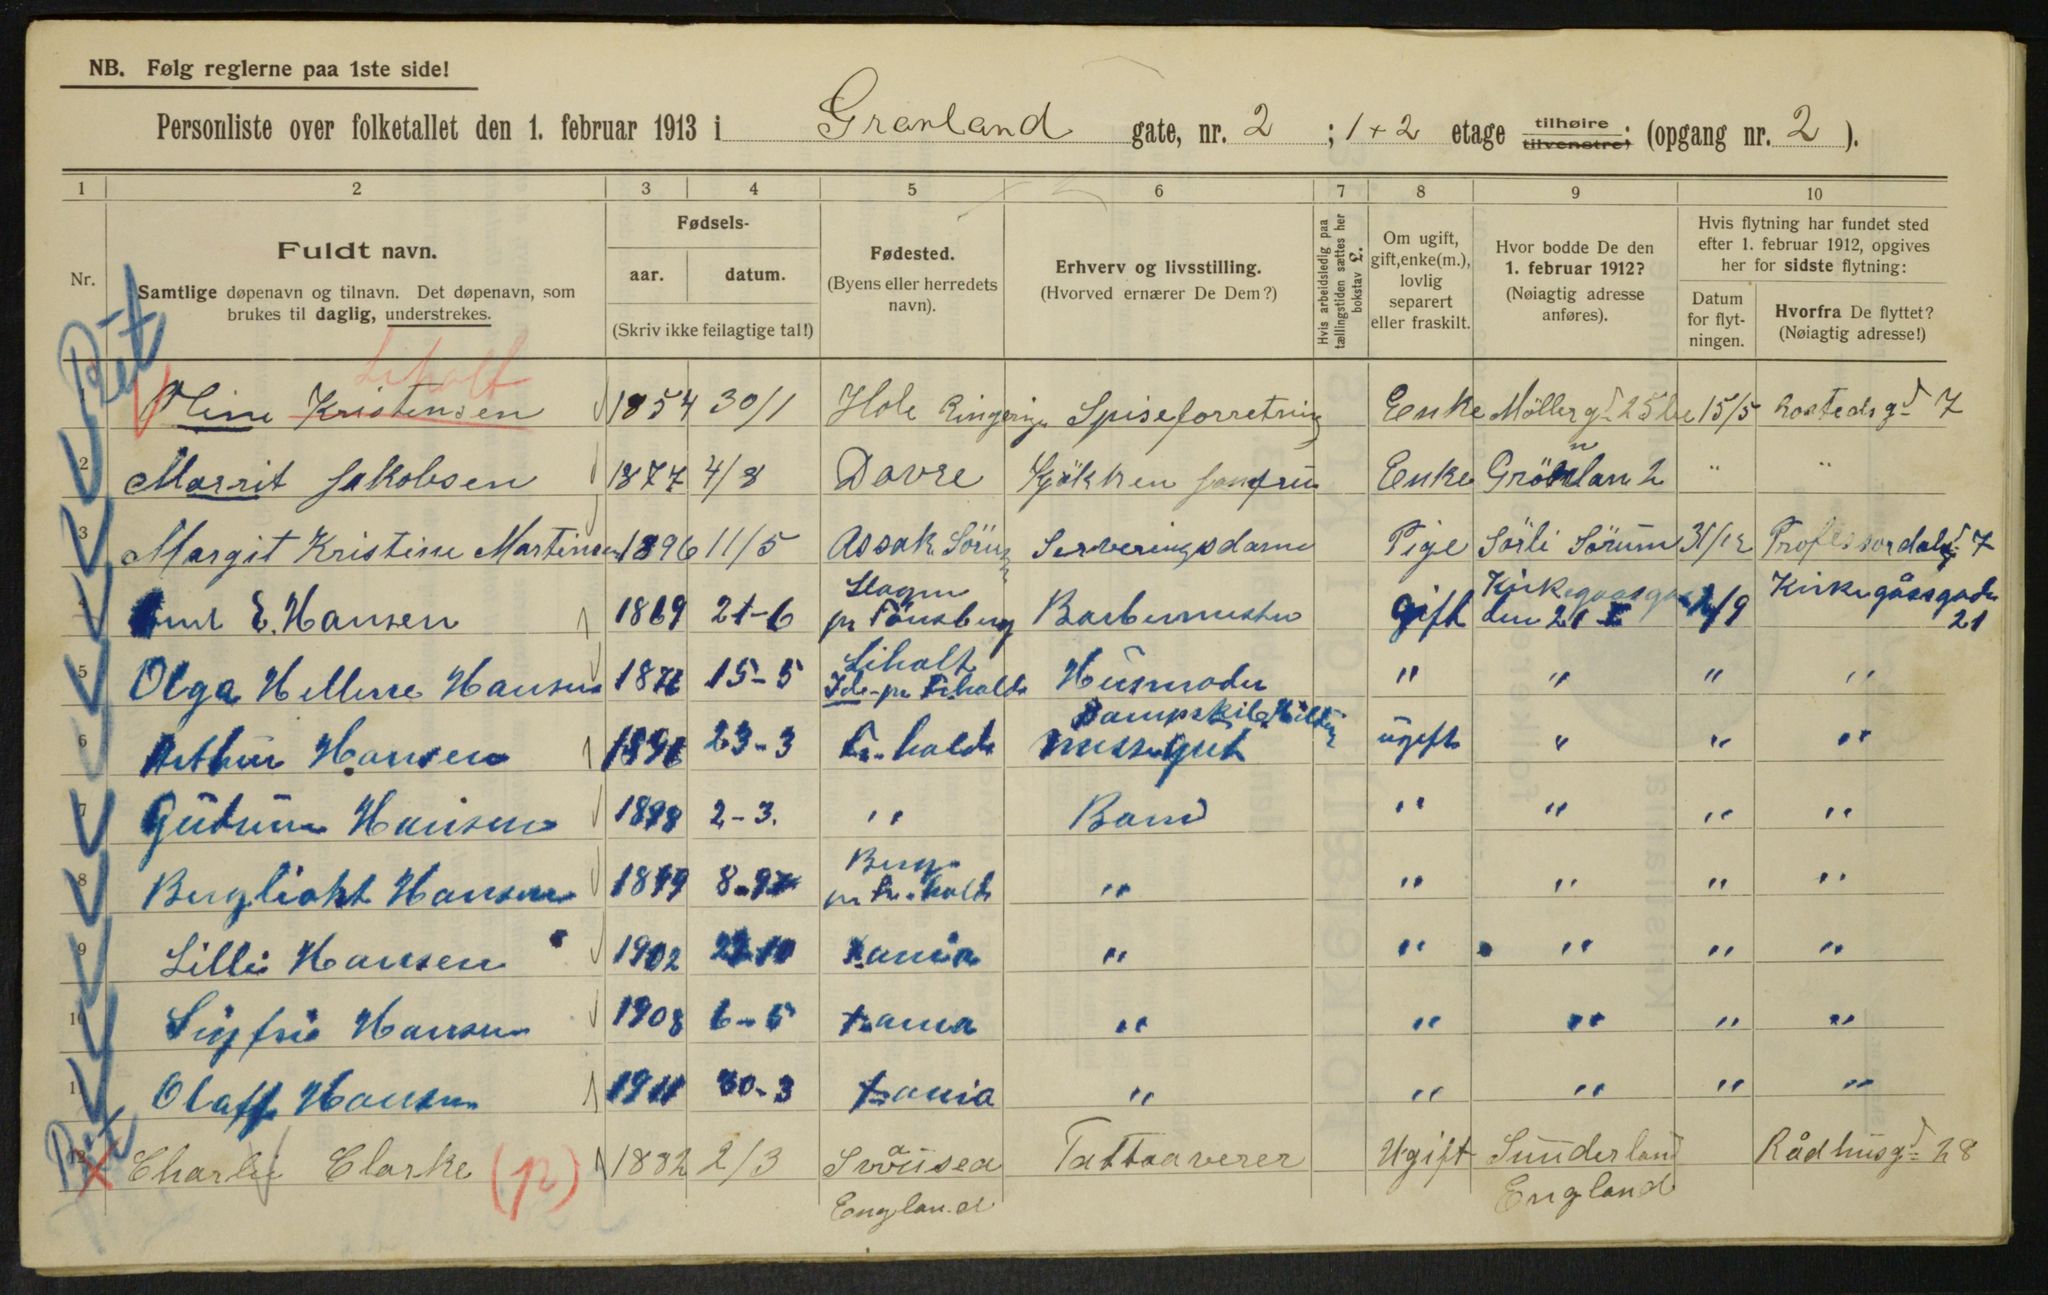 NB. Følg reglerne paa 1ste side!
Personliste over folketallet den 1. februar 1913 i Grønland gate, nr. 2 ; 1 + 2 etage tilhøire tilvenstre; (opgang nr. 2 ).
1 2 3 4 5 6 7 8 9 10
Nr.
Fuldt navn.
Samtlige døpenavn og tilnavn. Det døpenavn, som
brukes til daglig, understrekes.
Fødsels-
aar. datum.
(Skriv ikke feilagtige tal!)
Fødested.
(Byens eller herredets
navn).
Erhverv og livsstilling.
(Hvorved ernærer De Dem?)
Hvis arbeidsledig paa
tællingstiden sættes her
bokstav £.
Om ugift,
gift, enke(m.),
lovlig
separert
eller fraskilt.
Hvor bodde De den
1. februar 1912?
(Nøiagtig adresse
anføres).
Hvis flytning har fundet sted
efter 1. februar 1912, opgives
her for sidste flytning:
Datum
for flyt-
ningen.
Hvorfra De flyttet?
(Nøiagtig adresse!)
Rét
Liholt
Oline Kristensen 1854 30/1 Hole Ringerige Spiseforretning Enke Möllergd 25 15/5 Rostedsgd 7
2 Marrit Jakobsen 1877 4/8 Dovre Kjökken Jomfru Enke Grönlan 2 " "
3 Margit Kristine Martinsen 1896 11/5 Assak Sörum Serveringsdame Pige Sörli Sörum 31/12 Professordalsgd 7
4 E. Hansen 1869 21-6 Slagen pr Tönsberg Barbermester gift Kirkegaasgaden 21 /9 Kirkegåsgaden 21
5 Olga Hellene Hansen 1876 15-5 Liholt Ide pr Fr.hald Husmoder " " " "
6 Arthur Hansen 23-3 Fr.hald ugift " " "
7 Gudrun Hansen 1898 2-3. " Barn " " " "
8 Berglioht Hansen 1899 Berg pr Fr.hald " " " " "
9 Lilli Hansen 1902 Kania " " " " "
10 Sigfrid Hansen 1908 6-5 Kania " " " " "
11 Olaff Hansen 1911 30-3 Kania " " " " "
Rét
12 Charlie Clarke (p) 1882 2/3 Svansea England Tattaaverer Ugift Sunderland England Rådhusgd 28